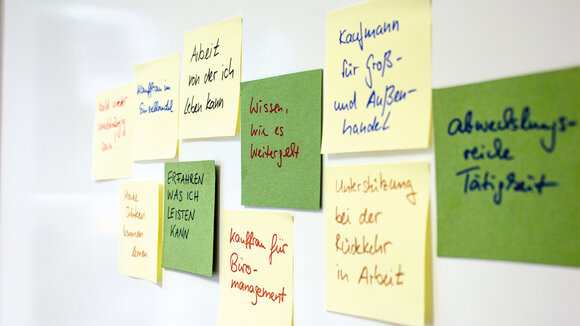 Kauffrau im
Einzelhandel
Arbeit
von der ich
leben kann
Wissen,
wie es
weitergeht
Kaufmann
für Groß-
und Außen-
handel
abwechslungs-
reiche
Tätigkeit
Meine
Stärken
kennen
lernen
ERFAHREN
WAS ICH
LEISTEN
KANN
Kauffrau für
Büro-
management
Unterstützung
bei der
Rückkehr
in Arbeit